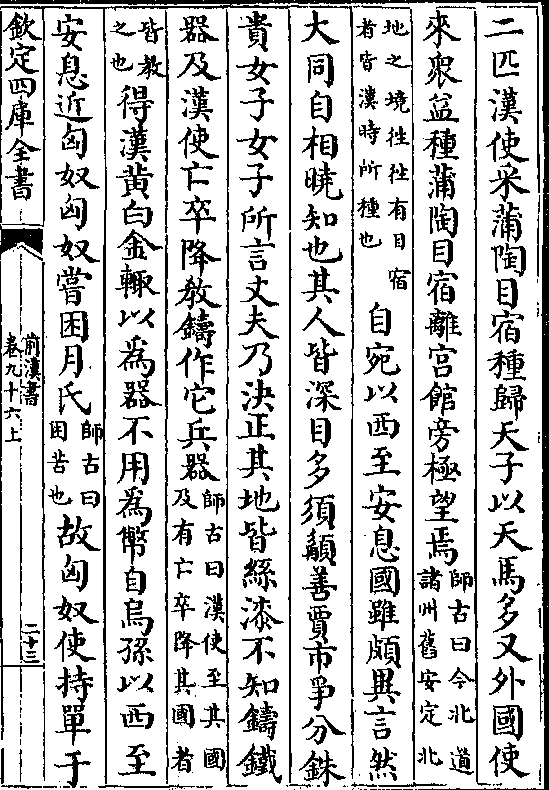 二匹漢使采蒲陶目宿種歸天子以天馬多又外國使
來衆益種蒲陶目宿離宮館旁極望焉師古曰今北道諸州舊安定北
地之境徃徃有目宿者皆漢時所種也自宛以西至安息國雖頗異言然
大同自相曉知也其人皆深目多須䫇善賈市爭分銖
貴女子女子所言丈夫乃決正其地皆絲漆不知鑄鐵
器及漢使亡卒降敎鑄作它兵器師古曰漢使至其國及有亡卒降其國者
皆敎之也得漢黃白金輒以為器不用為幣自烏孫以西至
安息近匈奴匈奴嘗困月氏師古曰困苦也故匈奴使持單于
欽定四庫全書
前漢書
卷九十六上
二十三